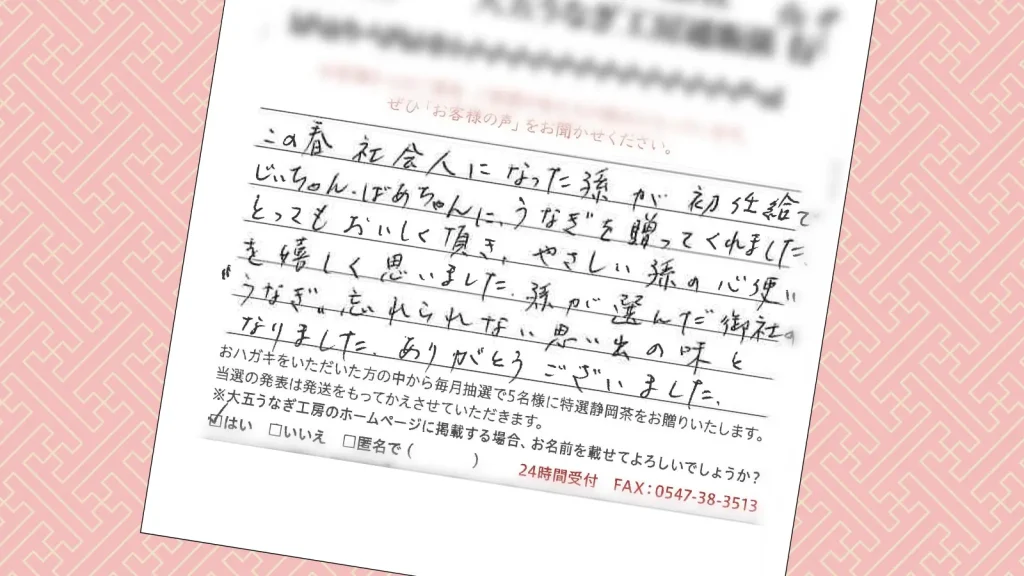 大五うなぎ工房
ぜひ「お客様の声」をお聞かせください。
この春 社会人になった孫が 初任給で
じいちゃん・ばあちゃんに、うなぎを贈ってくれました。
とってもおいしく頂き、やさしい孫の心使い
を嬉しく思いました。孫が選んだ御社の
"うなぎ"忘れられない思い出の味と
なりました。ありがとうございました。
おハガキをいただいた方の中から毎月抽選で5名様に特選静岡茶をお贈りいたします。
当選の発表は発送をもってかえさせていただきます。
※大五うなぎ工房のホームページに掲載する場合、お名前を載せてよろしいでしょうか?
☑はい □いいえ □匿名で( )
24時間受付 FAX:0547-38-3513